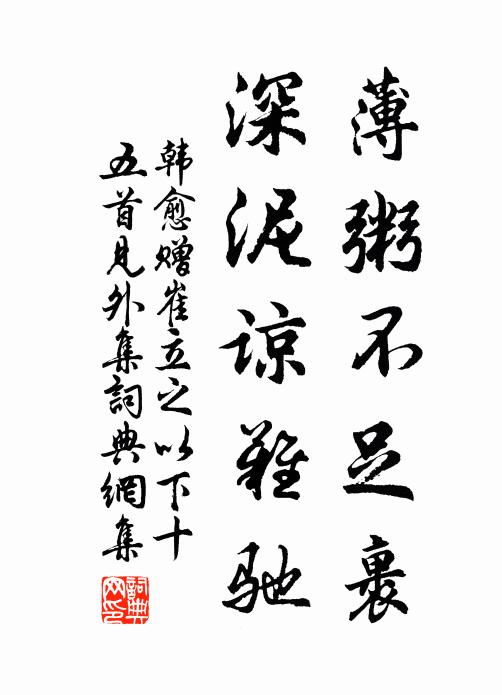 薄粥不足裹
深泥谅難驰
韩愈赠崔立之以下十
五首見外集詞典網集
詞典网印